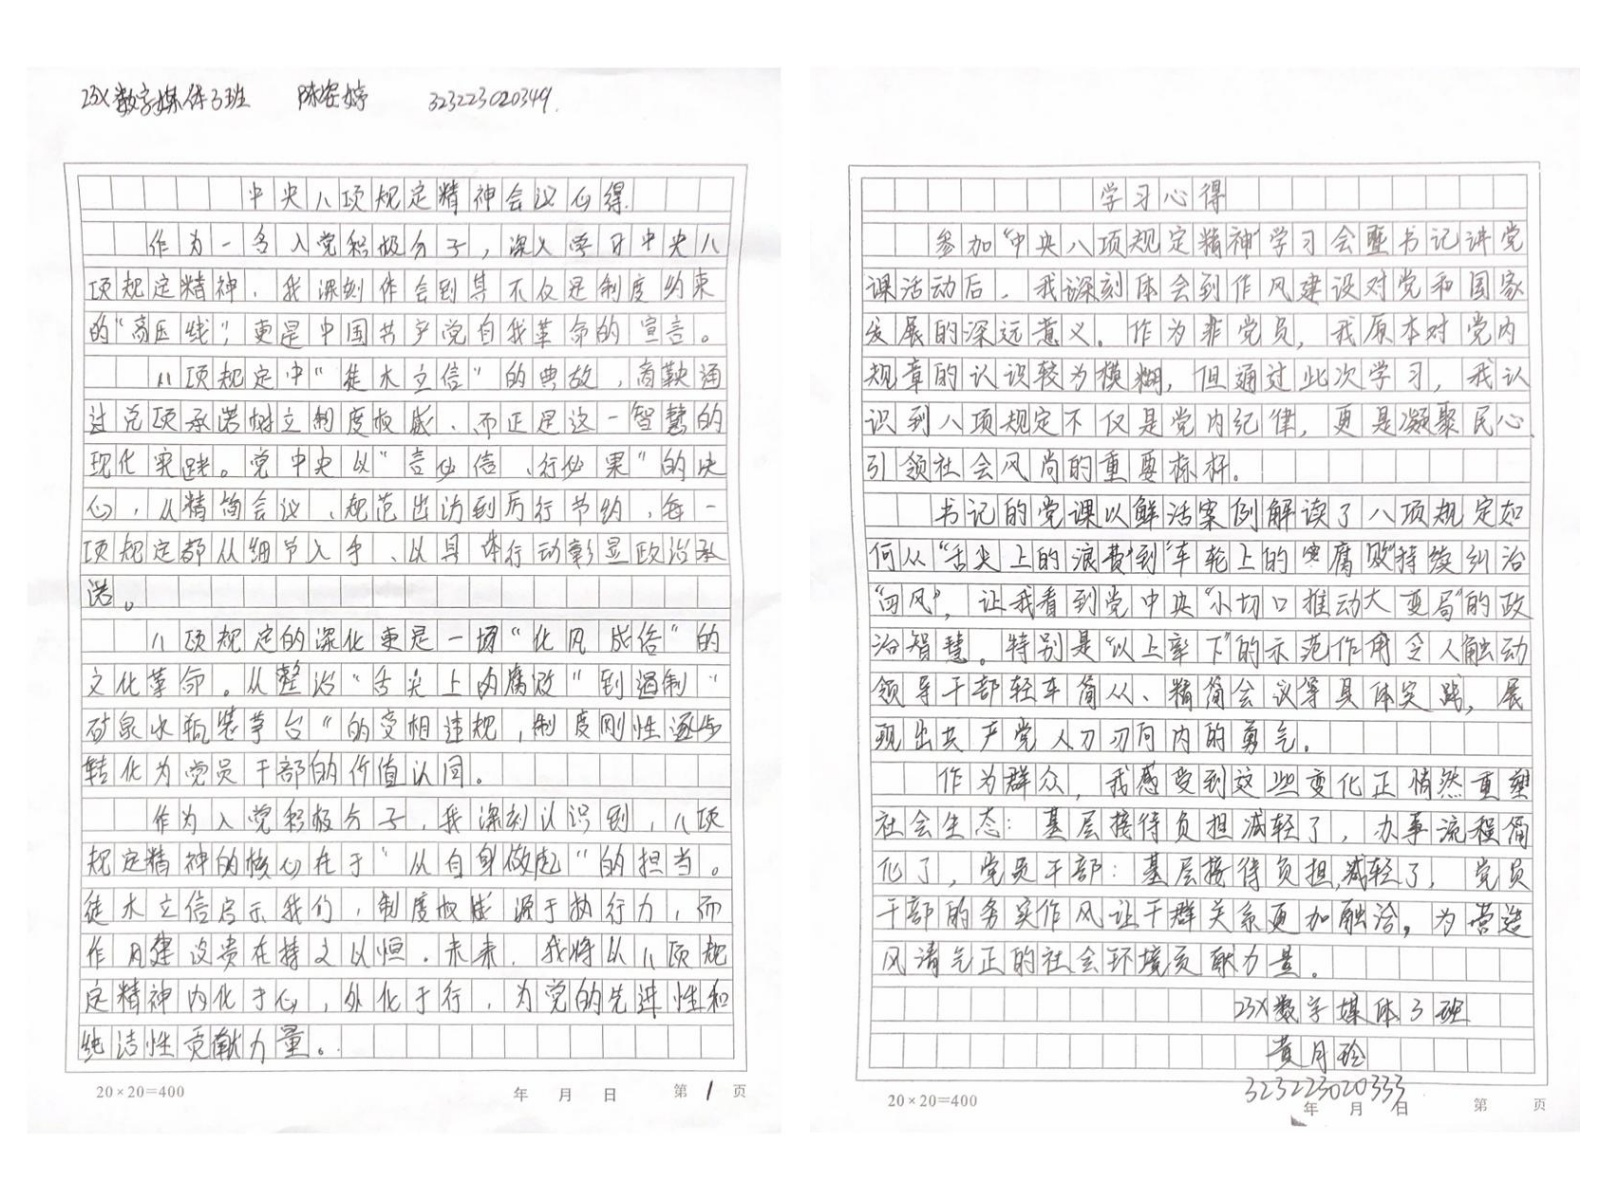 23X数字媒体3班 陈安婷 323223020349.
中央八项规定精神会议心得.
作为一名入党积极分子，深入学习中央八
项规定精神，我深刻体会到其不仅是制度约束
的“高压线”，更是中国共产党自我革命的宣言。
八项规定中“徒木立信”的典故，商鞅通
过兑项承诺树立制度权威，而正是这一智慧的
现化实践。党中央以“言必信、行必果”的决
心，从精简会议、规范出访到厉行节约，每一
项规定都从细节入手、以具体行动彰显政治承
诺。
八项规定的深化更是一场“化风成俗”的
文化革命。从整治“舌尖上的腐败”到遏制“
矿泉水瓶装茅台”的变相违规，制度刚性逐步
转化为党员干部的价值认同。
作为入党积极分子，我深刻认识到，八项
规定精神的核心在于“从自身做起”的担当。
徒木立信启示我们，制度权威源于执行力，而
作风建设贵在持之以恒。未来，我将以八项规
定精神内化于心，外化于行，为党的先进性和
纯洁性贡献力量。
20×20=400 年 月 日 第 1 页
学习心得
参加“中央八项规定精神”学习会暨书记讲党
课活动后，我深刻体会到作风建设对党和国家
发展的深远意义。作为非党员，我原本对党内
规章的认识较为模糊，但通过此次学习，我认
识到八项规定不仅是党内纪律，更是凝聚民心、
引领社会风尚的重要标杆。
书记的党课以鲜活案例解读了八项规定如
何从“舌尖上的浪费”到“车轮上的腐败”持续纠治
“四风”，让我看到党中央“小切口推动大变局”的政
治智慧。特别是“以上率下”的示范作用令人触动
领导干部轻车简从、精简会议等具体实践，展
现出共产党人刀刃向内的勇气。
作为群众，我感受到这些变化正悄然重塑
社会生态：基层接待负担减轻了，办事流程简
化了，党员干部：基层接待负担减轻了，党员
干部的务实作风让干群关系更加融洽，为营造
风清气正的社会环境贡献力量。
23X数字媒体3班
黄月玲
323223020333
20×20=400 年 月 日 第 页